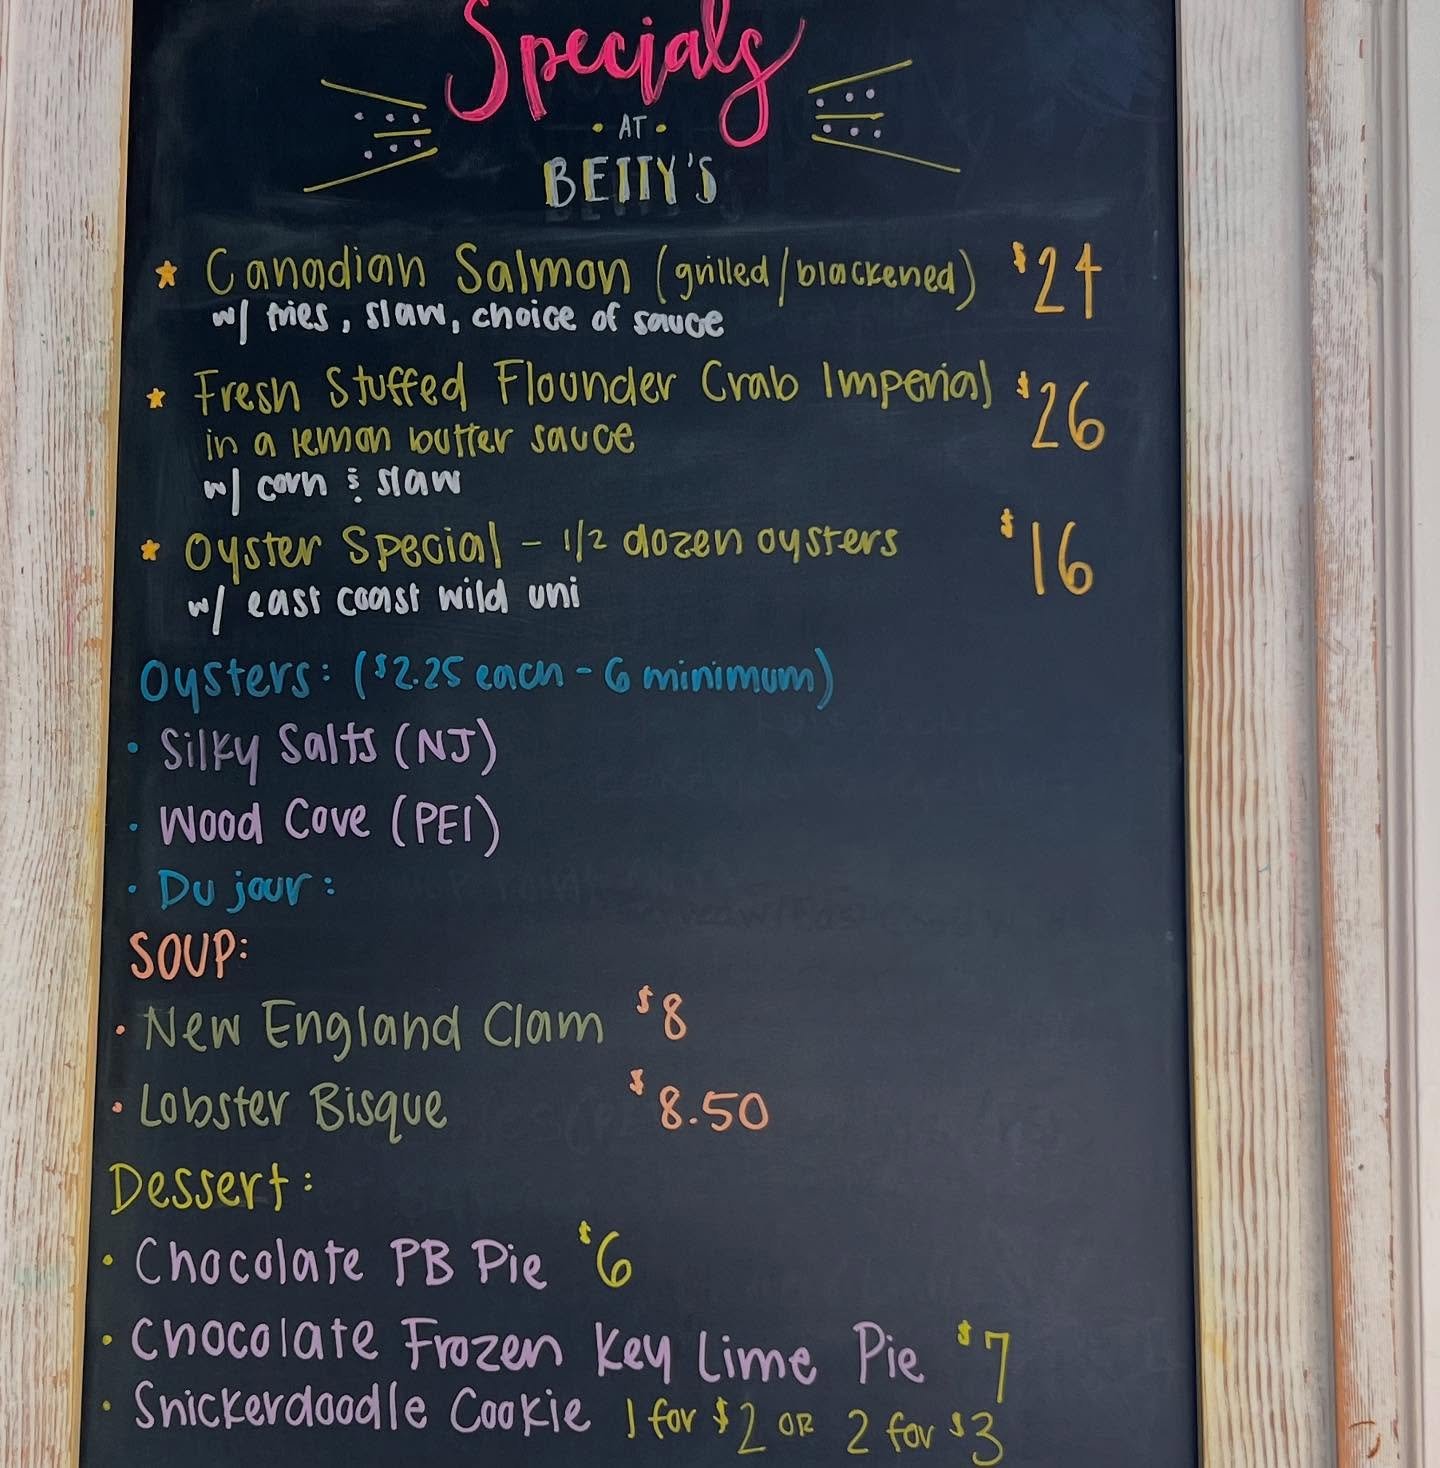 Specials
• AT •
BETTY'S
Canadian Salmon (grilled/blackened) $24
w/ fries, slaw, choice of sauce
Fresh Stuffed Flounder Crab Imperial $26
in a lemon butter sauce
w/ corn & slaw
Oyster Special - 1/2 dozen oysters $16
w/ east coast wild uni
Oysters: ($2.25 each - 6 minimum)
• Silky Salts (NJ)
• Wood Cove (PEI)
• Du jour:
SOUP:
• New England Clam $8
• Lobster Bisque $8.50
Dessert:
• Chocolate PB Pie $6
• Chocolate Frozen Key Lime Pie $7
• Snickerdoodle Cookie 1 for $2 OR 2 for $3